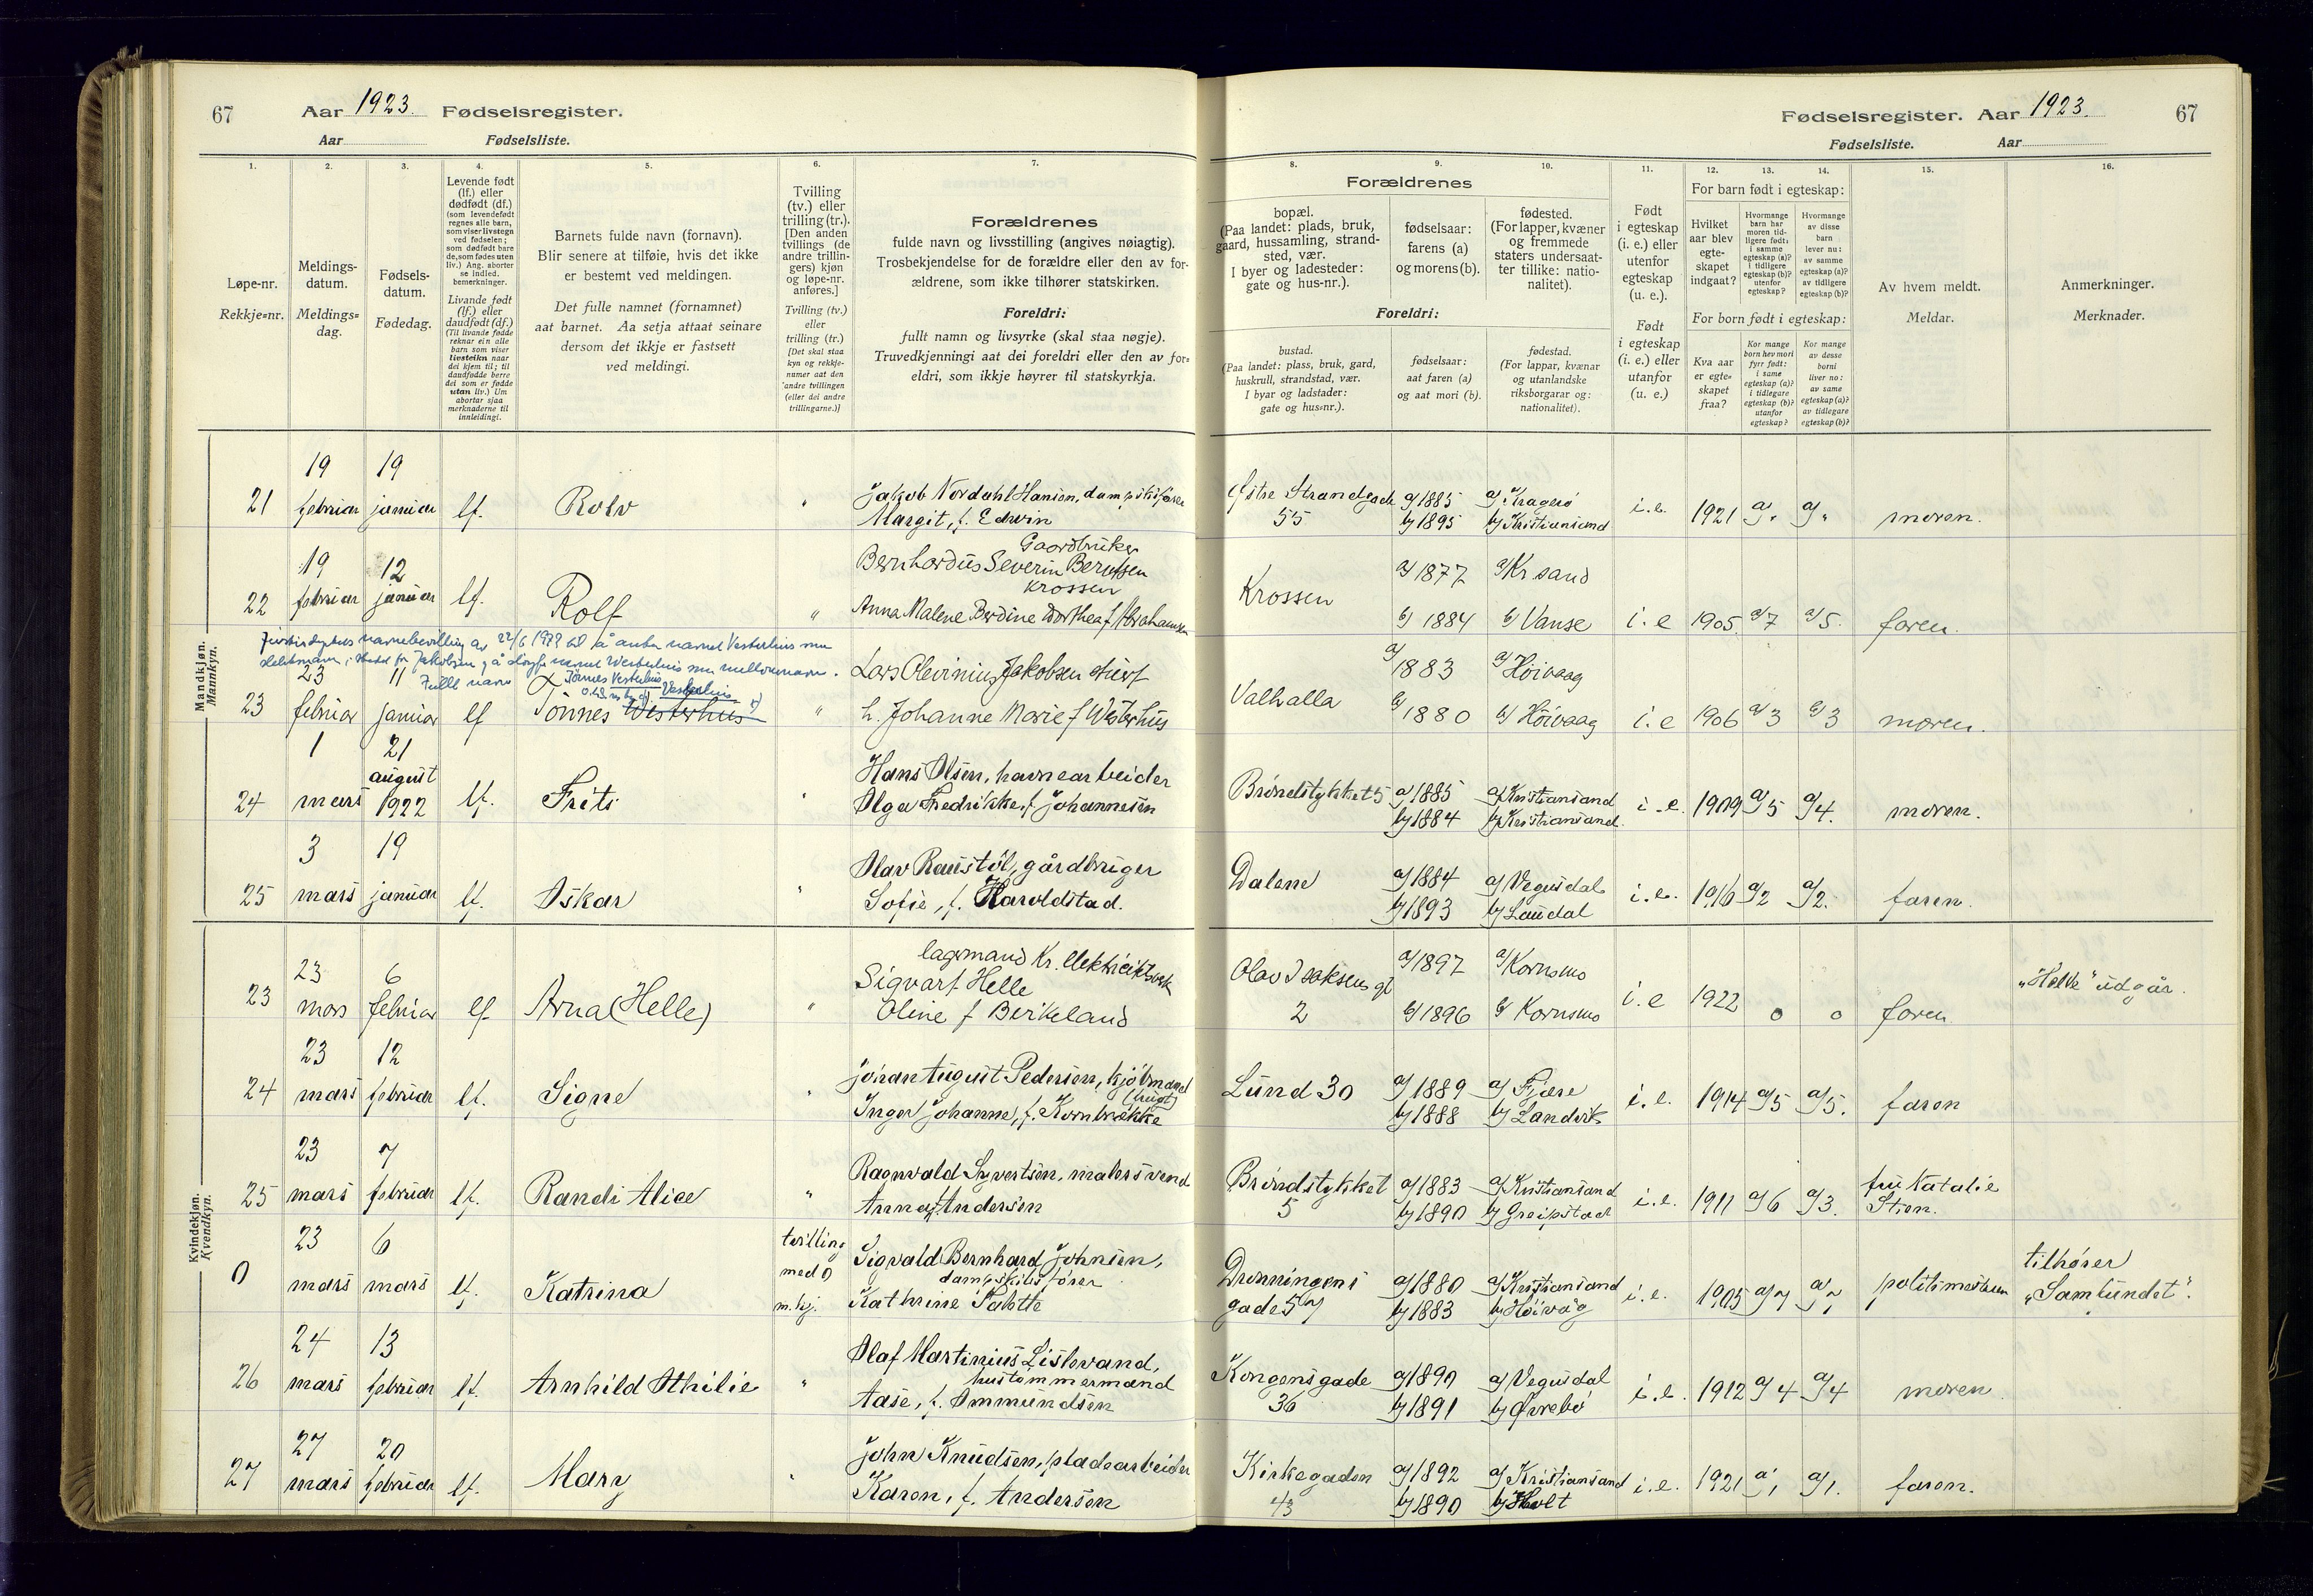 67
Aar 1923. Fødselsregister.
Aar Fødselsliste.
1.
Løpe-nr.
Rekkje=nr.
2.
Meldings-
datum.
Meldings=
dag.
3.
Fødsels-
datum.
Fødedag.
4.
Levende født
(lf.) eller
dødfødt (df.)
(som levendefødt
regnes alle barn,
som viser livstegn
ved fødselen;
som dødfødt bare
de, som fødes uten
liv.) Ang. aborter
se indled.
bemerkninger.
Livande født
(lf.) eller
daudfødt (df.)
(Til livande fødde
reknar ein alle
barn som viser
livsteikn naar
dei kjem til; til
daudfødde berre
dei som er fødde
utan liv.) Um
abortar sjaa
merknaderne til
innleidingi.
5.
Barnets fulde navn (fornavn).
Blir senere at tilføie, hvis det ikke
er bestemt ved meldingen.
Det fulle namnet (fornamnet)
aat barnet. Aa setja attaat seinare
dersom det ikkje er fastsett
ved meldingi.
6.
Tvilling
(tv.) eller
trilling (tr.).
[Den anden
tvillings (de
andre trillin-
gers) kjøn
og løpe-nr.
anføres.]
Tvilling (tv.)
eller
trilling (tr.)
[Det skal staa
kyn og rekkje-
numer aat den
andre tvillingen
(eller dei andre
trillingarne.)]
7.
Forældrenes
fulde navn og livsstilling (angives nøiagtig).
Trosbekjendelse for de forældre eller den av for-
ældrene, som ikke tilhører statskirken.
Foreldri:
fullt namn og livsyrke (skal staa nøgje).
Truvedkjenningi aat dei foreldri eller den av for=
eldri, som ikkje høyrer til statskyrkja.
Mandkjøn.
Mannkyn.
19 19
21 februar januar lf. Rolv " Jakob Nordahl Hansen, dampskibsfører
Margit, f. Edwin
19 12
22 februar januar lf. Rolf " Gaardbruker
Bernhardus Severin Berntsen
Krossen
Anna Malene Berdine Dorthea f Abrahamsen
23 11
23 februar januar lf Tönnes Westerhus "
Lars Olevinius Jakobsen
h. Johanne Marie f Westerhus
1 21
august
24 mars 1922 lf. Frits " Hans Olsen, havnearbeider
Olga Fredrikke, f Johannesen
3 19
25 mars januar lf. Oskar " Olav Raustöl, gårdbruger
Sofie, f. Haroldstad.
Kvindekjøn.
Kvendkyn.
23 6
23 mars februar lf Arna (Helle) " lagermand Kr. elektricitetsverk
Sigvart Helle
Oline f Birkeland
23 12
24 mars februar lf. Signe " Johan August Pedersen, kjöbmand
(frugt)
Inger Johanne, f. Kornbrække
23 7
25 mars februar lf. Randi Alice " Ragnvald Syvertsen, malersvend
Anna f Andersen
23 6
0 mars mars lf. Katrina tvilling
med 0
m.kj.
Sigvald Bernhard Johnsen,
dampskibsfører
Kathrine Palotte
24 13
26 mars februar lf. Arnhild Othilie " Olaf Martinius Lislevand,
hustømmermand
Aase, f. Ommundsen
27 20
27 mars februar lf. Mary " John Knudsen, pladearbeider
Karen, f. Andersen
Fødselsregister. Aar 1923. 67
Fødselsliste. Aar
8.
Forældrenes
bopæl.
(Paa landet: plads, bruk,
gaard, hussamling, strand-
sted, vær.
I byer og ladesteder:
gate og hus-nr.).
9.
fødselsaar:
farens (a)
og morens (b).
10.
fødested.
(For lapper, kvæner
og fremmede
staters undersaat-
ter tillike: natio-
nalitet).
Foreldri:
bustad.
(Paa landet: plass, bruk, gard,
huskrull, strandstad, vær.
I byar og ladstader:
gate og hus=nr.).
fødselsaar:
aat faren (a)
og aat mori (b).
fødestad.
(For lappar, kvænar
og utanlandske
riksborgarar og:
nationalitet).
11.
Født
i egteskap
(i. e.) eller
utenfor
egteskap
(u. e.).
Født
i egteskap
(i. e.) eller
utanfor
(u. e.)
12. 13. 14.
For barn født i egteskap:
Hvilket
aar blev
egte-
skapet
indgaat?
Hvormange
barn har
moren tid-
ligere født:
i samme
egteskap (a)?
i tidligere
egteskap (b)?
utenfor
egteskap?
Hvormange
av disse
barn
lever nu:
av samme
egteskap (a)?
av tidligere
egteskap (b)?
For born født i egteskap:
Kva aar
er egte=
skapet
fraa?
Kor mange
born hev mori
fyrr født:
i same
egteskap (a)?
i tidlegare
egteskap (b)?
utanfor
egteskap?
Kor mange
av desse
borni
liver no:
av same
egteskap (a)?
av tidlegare
egteskap (b)?
15.
Av hvem meldt.
Meldar.
16.
Anmerkninger.
Merknader.
Østre Strandgade a/1885 a/Kragerø
55 b/1895 b/Kristiansand i.e. 1921 a/" a/" moren.
a/1877 a/Kr.sand
Krossen b/1884 b/Vanse i.e 1905. a/7 a/5. faren.
a/1883 a/Höivaag
Valhalla b/1880 b/Höivaag i.e 1906 a/3 a/3 moren.
Bröndstykket 5 a/1885 a/Kristiansand
b/1884 b/Kristiansand. i.e. 1909 a/5 a/4. moren.
Dalene a/1884 a/Vegusdal
b/1893 b/Laudal i.e. 1916 a/2 a/2. faren.
Olav Isaksens gt a/1897 a/Kornsmo
2 b/1896 b/Kornsmo i.e 1922 0 0 faren „Helle" udgår.
Lund 30 a/1889 a/Fjære
b/1888 b/Landvik i.e. 1914 a/5 a/5. faren
Bröndstykket a/1883 a/Kristiansand
5 b/1890 b/Greipstad i.e. 1911 a/6 a/3. fru Natalie
Steen.
Dronningens a/1880 a/Kristiansand
gade 57 b/1883 b/Höivåg i.e. 1905 a/7 a/7 politimesteren tilhører
„Samfundet".
Kongensgade a/1890 a/Vegusdal
36 b/1891 b/Øvrebö i.e. 1912 a/4 a/4 moren
Kirkegaden a/1892 a/Kristiansand
43 b/1890 b/Holt i.e. 1921 a/1 a/1. faren.